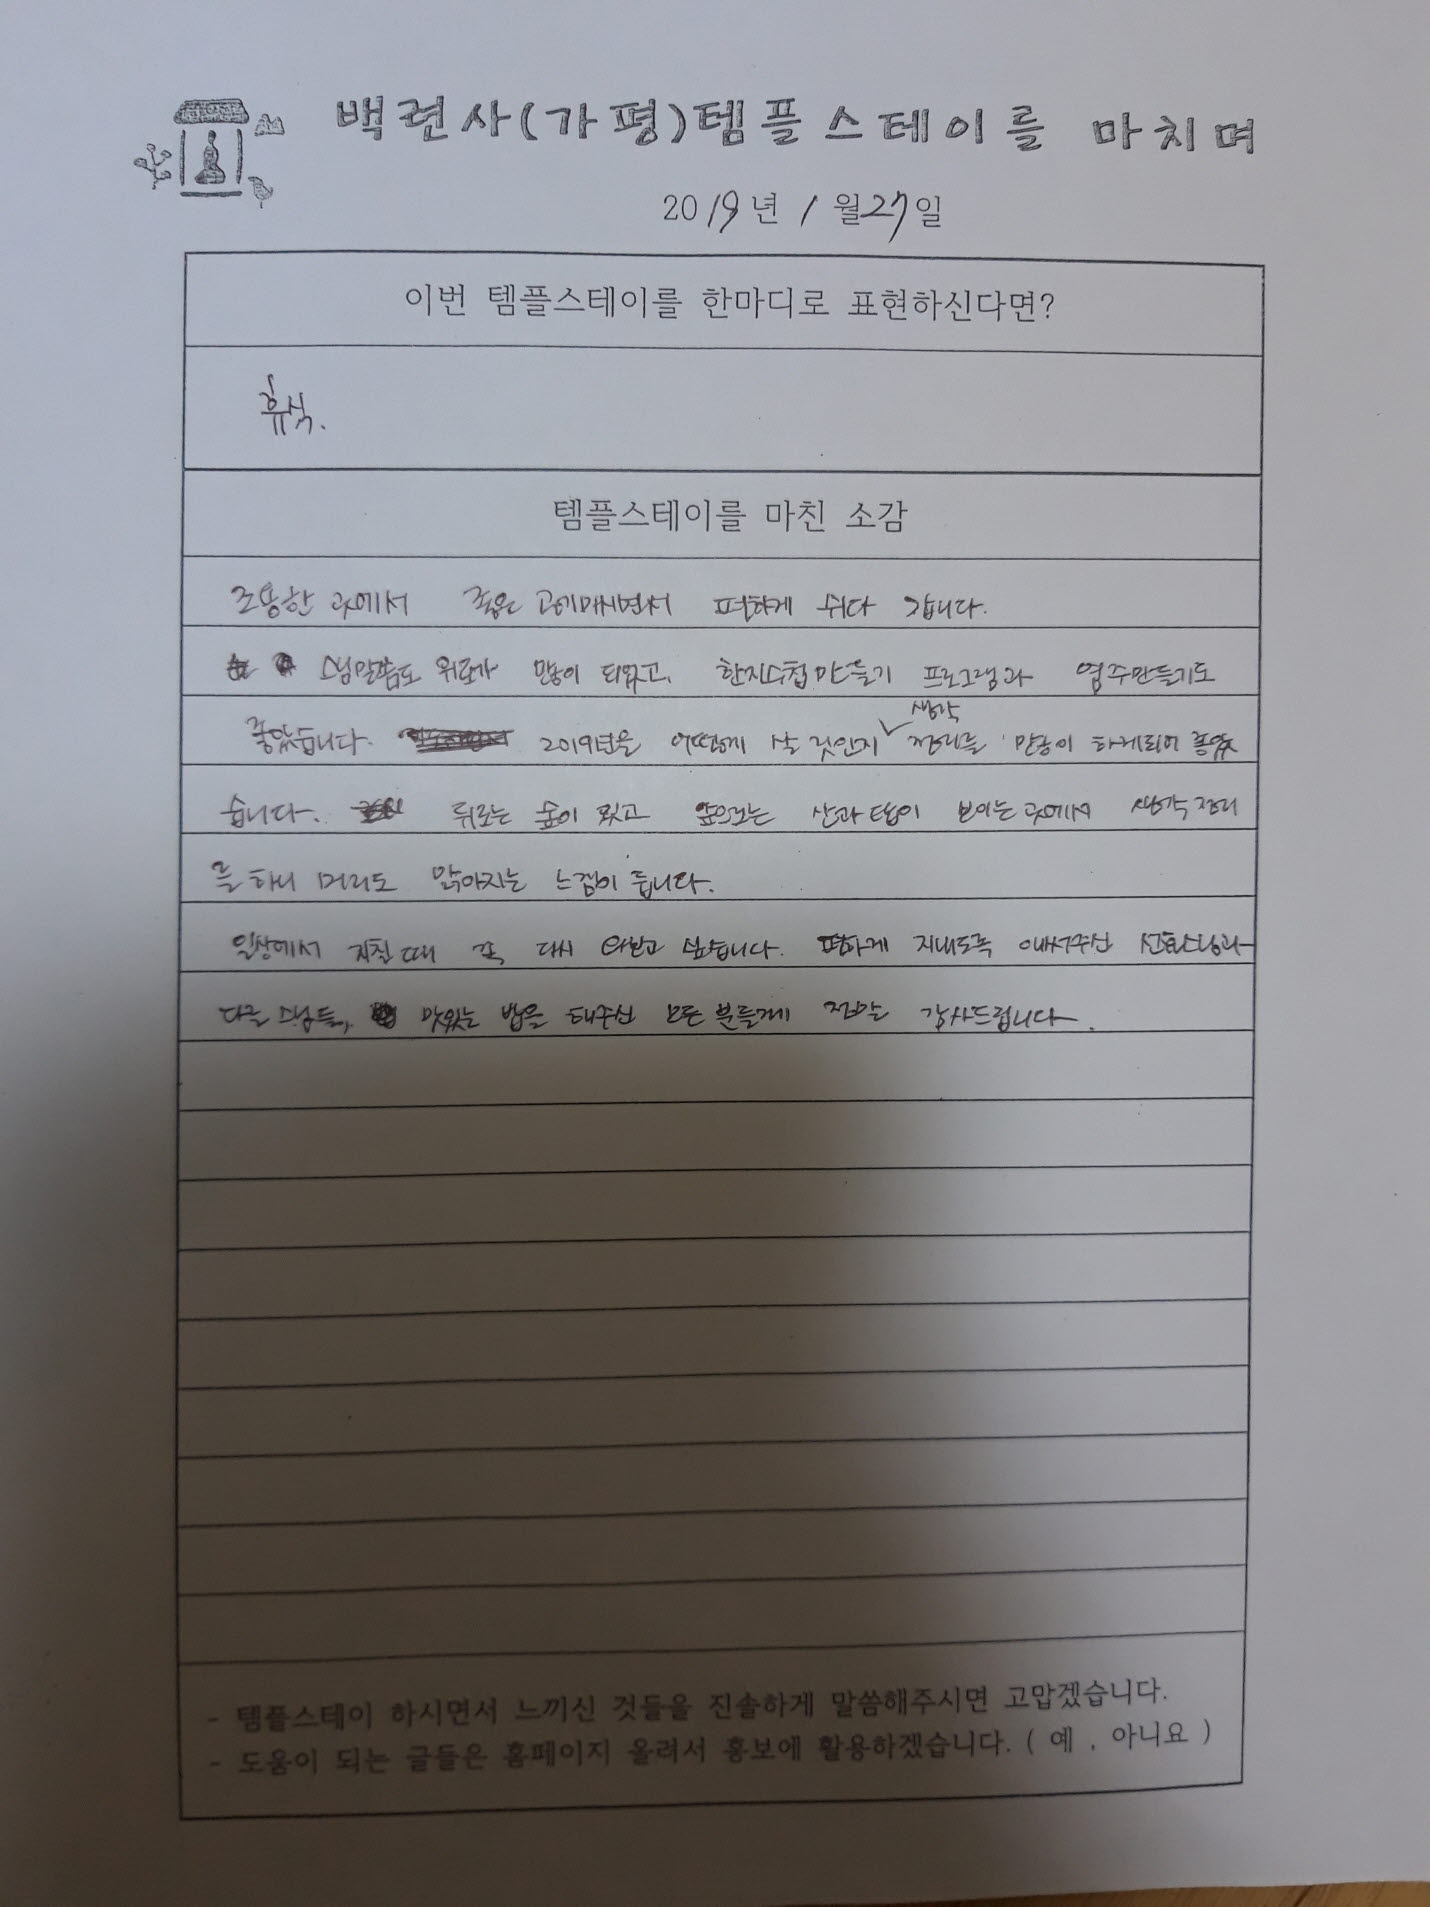 백련사(가평)템플스테이를 마치며
2019년 1월27일
이번 템플스테이를 한마디로 표현하신다면?
휴식.
템플스테이를 마친 소감
조용한 곳에서 좋은 공기마시면서 편하게 쉬다 갑니다.
스님말씀도 위로가 많이 되었고, 한지수첩만들기 프로그램과 염주만들기도
생각
좋았습니다. 2019년을 어떻게 살 것인지 정리를 많이 하게되어 좋았
습니다. 뒤로는 숲이 있고 앞으로는 산과 탑이 보이는 곳에서 생각정리
를 하니 머리도 맑아지는 느낌이 듭니다.
일상에서 지칠 때 꼭 다시 와보고 싶습니다. 편하게 지내도록 애써주신 스님과
다른 스님들, 맛있는 밥을 해주신 모든 분들께 정말 감사드립니다.
- 템플스테이 하시면서 느끼신 것들을 진솔하게 말씀해주시면 고맙겠습니다.
- 도움이 되는 글들은 홈페이지 올려서 홍보에 활용하겠습니다. ( 예 , 아니요 )